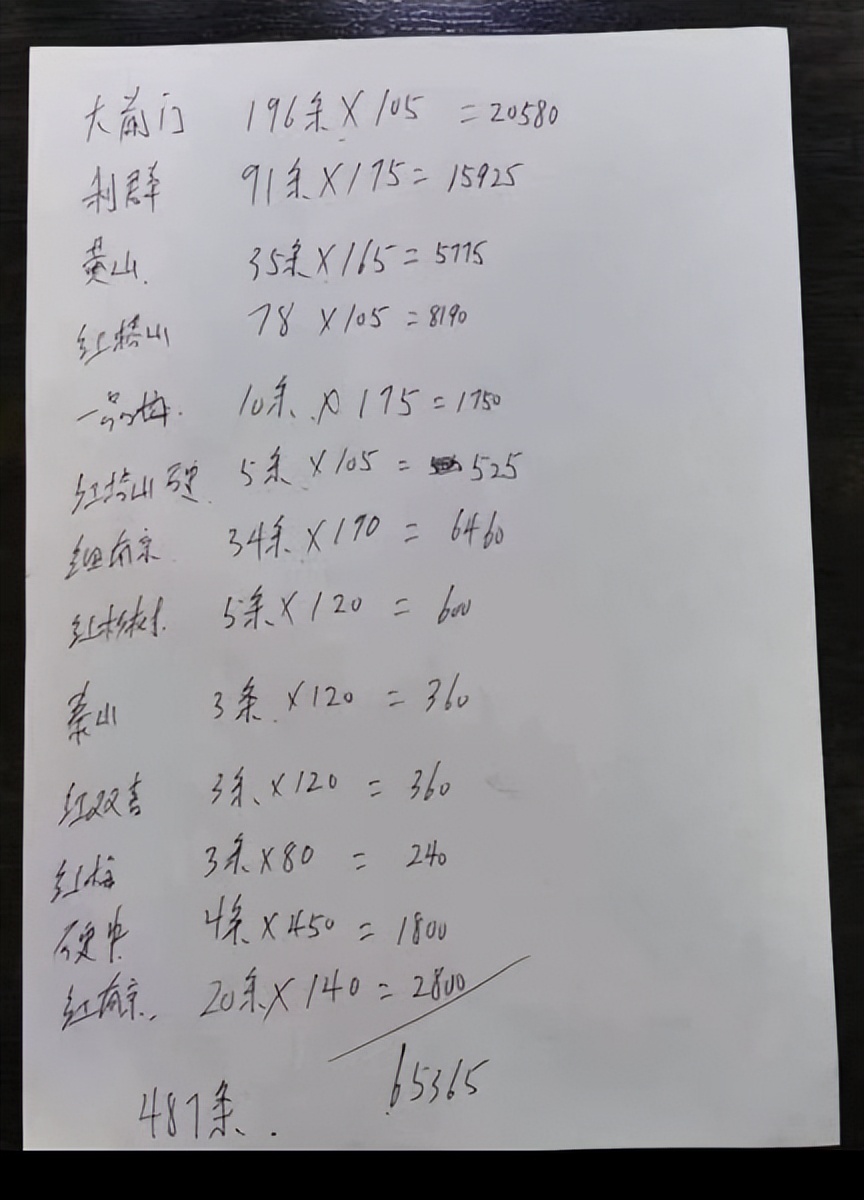 大前门 196条×105 =20580
利群 91条×175=15925
黄山. 35条×165=5775
红塔山 78 ×105=8190
一品梅. 10条.×175=1750
红塔山硬. 5条×105= 525
细南京. 34条×190= 6460
红杉树. 5条×120 = 600
泰山 3条.×120 = 360
红双喜 3条、×120 = 360
红梅 3条×80 = 240
硬中 4条×450=1800
红南京. 20条×140=2800
65365
487条、.